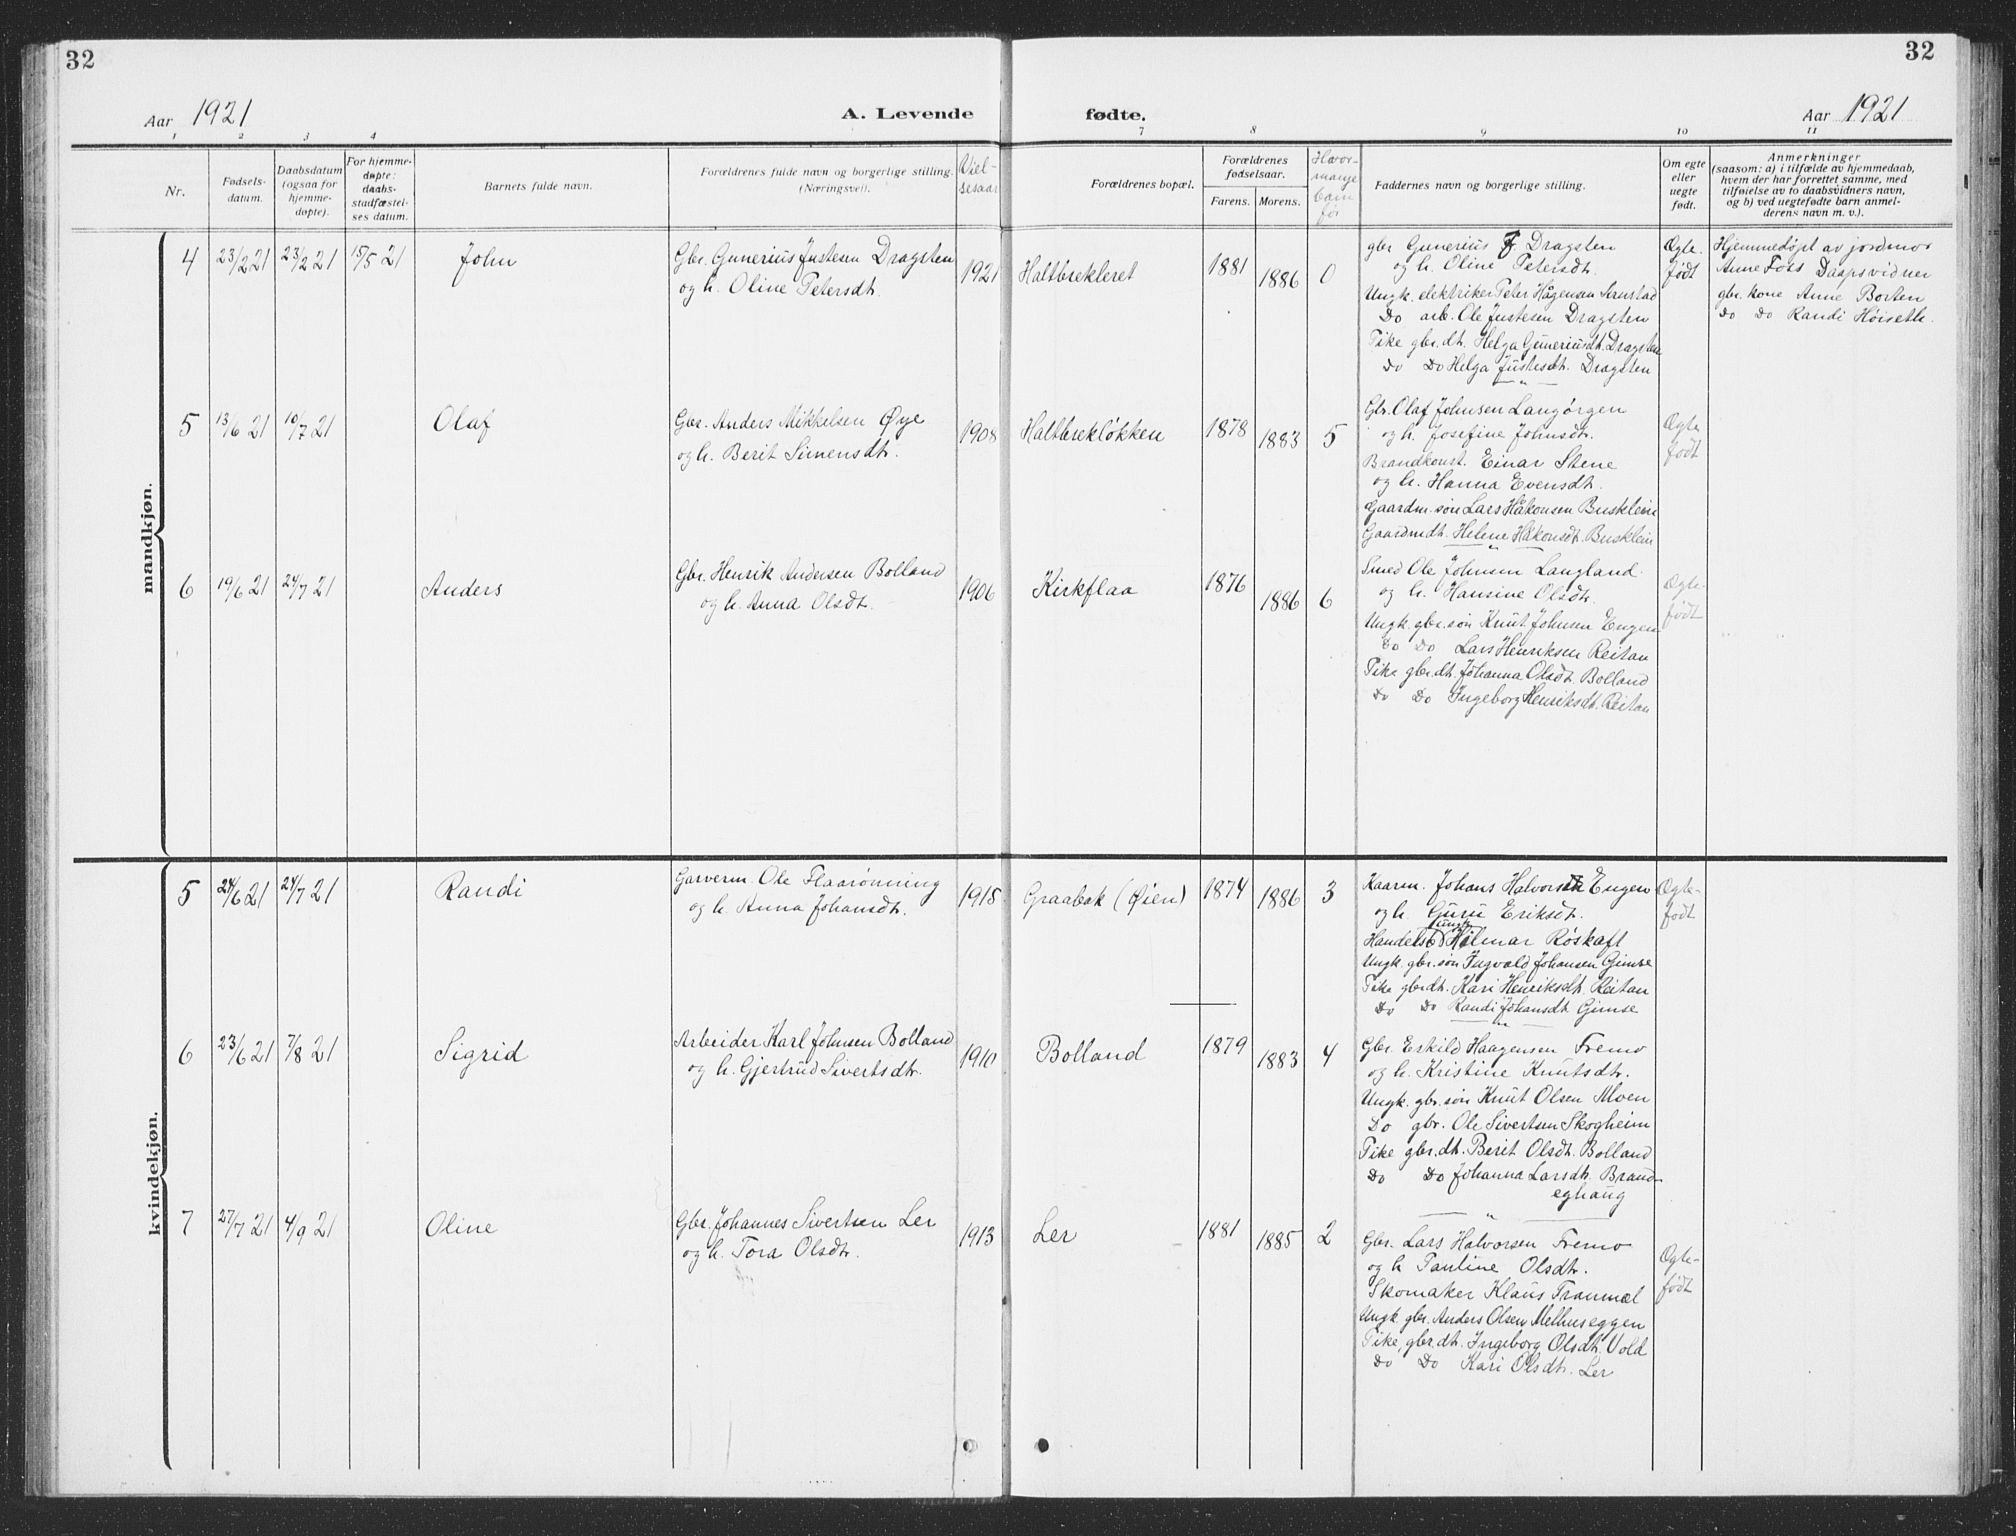 32
32
Aar 1921
A. Levende fødte.
Aar 1921
1 2 3 4 7 8 9 10 11
Nr.
Fødsels-
datum.
Daabsdatum
(ogsaa for
hjemme-
døpte).
For hjemme-
døpte:
daabs-
stadfæstel-
ses datum.
Barnets fulde navn.
Forældrenes fulde navn og borgerlige stilling.
(Næringsvei).
Viel-
sesaar
Forældrenes bopæl.
Forældrenes
fødselsaar.
Farens. Morens.
Hvor-
mange
barn
før
Faddernes navn og borgerlige stilling.
Om egte
eller
uegte
født.
Anmerkninger
(saasom: a) i tilfælde av hjemmedaab,
hvem der har forrettet samme, med
tilføielse av to daabsvidners navn,
og b) ved uegtefødte barn anmel-
derens navn m. v.).
mandkjøn.
4 23/2 21 23/2 21 15/5 21 John
Gbr. Gunerius Justesen Dragsten
og h. Oline Petersdt.
1921 Haltbrekleret 1881 1886 0
gbr Gunerius J. Dragsten
og h. Oline Petersdt.
Ungk. elektriker Peter Hågensen
Do arb. Ole Justesen Dragsten
Pike gbr.dt. Helga Guneriusdt. Dragsten
Do Do Helga Justesdt. Dragsten
Ægte-
født
Hjemmedöpt av jordmor
Anne Foss Daapsvidner
gbr. kone Anne Borten
Do Do Randi Höiseth.
5 13/6 21 10/7 21 Olaf
Gbr. Anders Mikkelsen Øye
og h. Berit Simensdt.
1908 Haltbreklökken 1878 1883 5
Gbr. Olaf Johnsen Langörgen
og h. Josefine Johnsdt.
Brandkonst. Einar Stene
og h. Hanna Evensdt.
Gaardm. sön Lars Håkonsen Busklein
Gaardmdt. Helene Håkonsdt. Busklein
Ægte
født
6 19/6 21 24/7 21 Anders
Gbr. Henrik Andersen Bolland
og h. Anna Olsdt.
1906 Kirkflaa 1876 1886 6
Smed Ole Johnsen Langland.
og h. Hansine Olsdt.
Ungk. gbr. sön Knut Johnsen Engen
Do Do Lars Henriksen Reitan
Pike gbr. dt. Johanna Olsdt. Bolland
Do Do Ingeborg Henriksdt. Reitan
Ægte-
født
kvindekjøn.
5 24/6 21 24/7 21 Randi
Garverm. Ole Flaarönning
og h. Anna Johansdt.
1915 Graabak (Øien) 1874 1886 3
Kaarm. Johans Halvorsen Engen
og h. Guru Eriksdt.
ungk.
Handelsb. Hilmar Röskaft
Ungk. gbr. sön Ingvald Johansen Gimse
Pike gbrdt. Kari Henriksdt. Reitan
Do Do Randi Johansdt Gimse
Ægte-
født
6 23/6 21 7/8 21 Sigrid
Arbeider Karl Johnsen Bolland
og h. Gjertrud Sivertsdt.
1910 Bolland 1879 1883 4
Gbr. Eskild Haagensen Fremo
og h. Kristine Knutsdt.
Ungk. gbr. sön Knut Olsen Moen
Do gbr. Ole Sivertsen Skogheim
Pike gbr. dt. Berit Olsdt. Bolland
Do Do Johanna Larsdt. Brand-
eghaug
7 27/7 21 4/9 21 Oline
Gbr. Johannes Sivertsen Ler
og h. Tora Olsdt.
1913 Ler 1881 1885 2
Gbr. Lars Halvorsen Fremo
og h Pauline Olsdt.
Skomaker Klaus Tranmæl
Ungk gbr. Anders Olsen Melhuseggen
Pike, gbr dt. Ingeborg Olsdt. Vold
Do Do Kari Olsdt. Ler
Ægte-
født